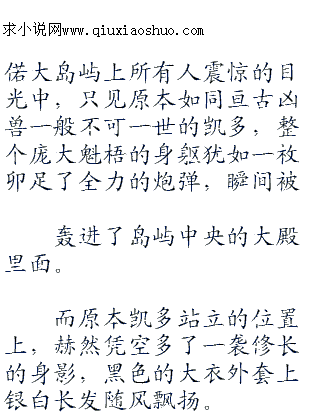 求小说网www.qiuxiaoshuo.com
偌大岛屿上所有人震惊的目
光中，只见原本如同亘古凶
兽一般不可一世的凯多，整
个庞大魁梧的身躯犹如一枚
卯足了全力的炮弹，瞬间被
轰进了岛屿中央的大殿
里面。
而原本凯多站立的位置
上，赫然凭空多了一袭修长
的身影，黑色的大衣外套上
银白长发随风飘扬。